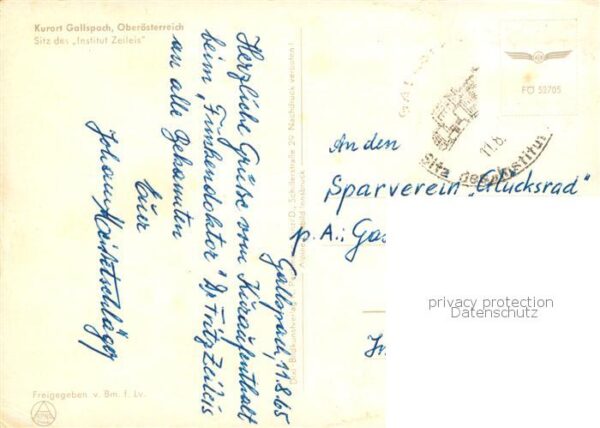 Kurort Gallspach, Oberösterreich
Sitz des „Institut Zeileis"
Gallspach, 11.8.65
Herzliche Grüsse vom Kuraufenthalt
beim „Funkendoktor" Dr Fritz Zeileis
an alle Bekannten
Euer
Johann
Freigegeben v. Bm. f. Lv.
Schillerstraße 29 Nachdruck verboten!
FO 52705
11.8.
Sitz des Institut
An den
Sparverein „Glücksrad"
p. A.: Gas
privacy protection
Datenschutz